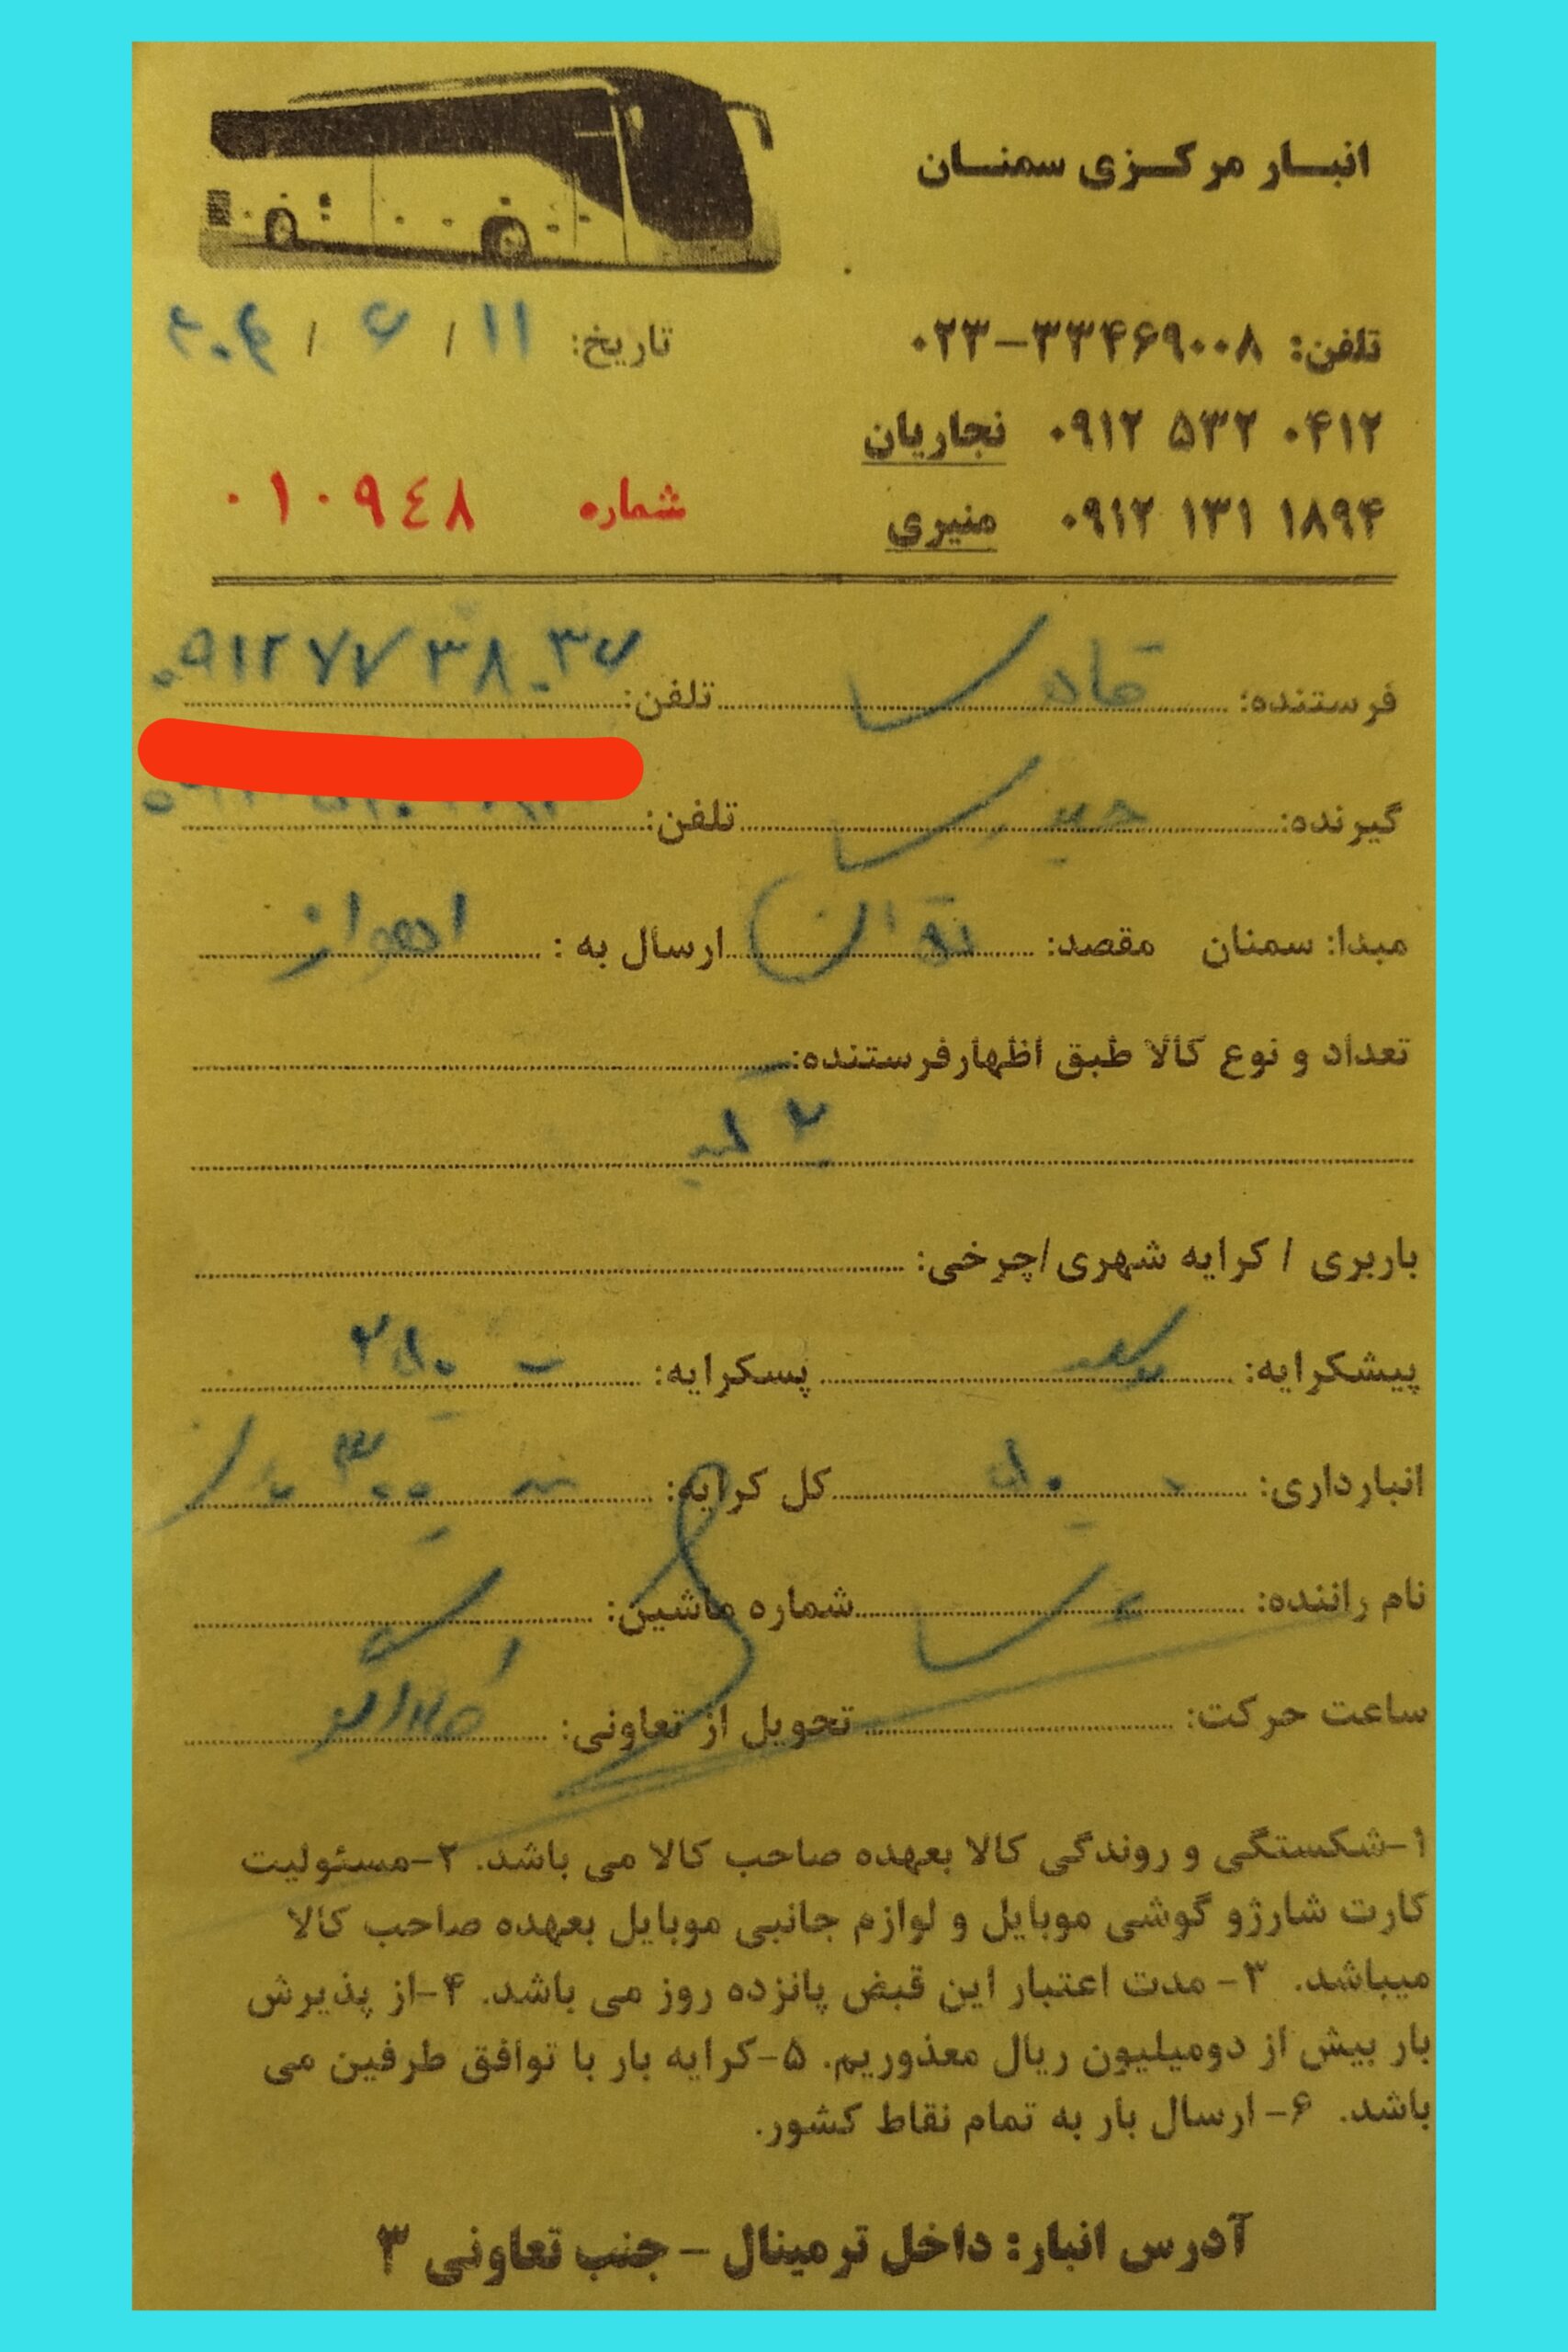 انبار مرکزی سمنان
تلفن: ۰۲۳-۳۳۴۶۹۰۰۸
تاریخ: ۱۱ / ۶ / ۴۰۴
۰۹۱۲ ۵۳۲ ۰۴۱۲ نجاریان
شماره ۰۱۰۹٤۸
۰۹۱۲ ۱۳۱ ۱۸۹۴ منیری
فرستنده: تلفن: ۰۹۱۲۷۷۳۸۰۳۷
گیرنده: تلفن:
مبدا: سمنان مقصد: تهران ارسال به : اهواز
تعداد و نوع کالا طبق اظهارفرستنده:
۲
باربری / کرایه شهری/چرخی:
پیشکرایه: پسکرایه: ۲۵۰
انبارداری: ۵۰ کل کرایه: ۳۰۰
نام راننده: شماره ماشین:
ساعت حرکت: تحویل از تعاونی:
۱-شکستگی و روندگی کالا بعهده صاحب کالا می باشد. ۲-مسئولیت
کارت شارژو گوشی موبایل و لوازم جانبی موبایل بعهده صاحب کالا
میباشد. ۳- مدت اعتبار این قبض پانزده روز می باشد. ۴-از پذیرش
بار بیش از دومیلیون ریال معذوریم. ۵-کرایه بار با توافق طرفین می
باشد. ۶- ارسال بار به تمام نقاط کشور.
آدرس انبار: داخل ترمینال - جنب تعاونی ۳